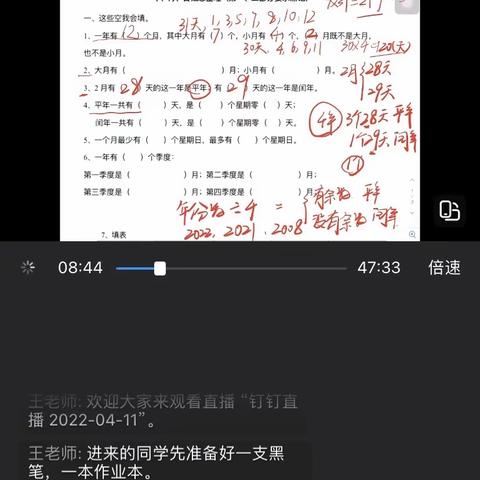 一、这些空我会填。
31天, 1, 3, 5, 7, 8, 10, 12
1、一年有(12)个月，其中大月有(7)个，小月有(4)个，(2)月既不是大月，
也不是小月。
30天, 4, 6, 9, 11
30×4=120(天)
2、大月有( )月；小月有( )月。
2月 28天
29天
3、2月有(28)天的这一年是平年，有(29)天的这一年是闰年。
4、平年一共有( )天，是( )个星期零( )天；
闰年一共有( )天，是( )个星期零( )天。
4年
3个28天 平年
1个29天 闰年
5、一个月最少有( )个星期日，最多有( )个星期日。
6、一年有( )个季度：
第一季度是( )月；第二季度是( )月；
第三季度是( )月；第四季度是( )月；
年份为÷4=
有余数 平年
没有余数 闰年
2022, 2021, 2008
7、填表
08:44
47:33
倍速
王老师: 欢迎大家来观看直播 “钉钉直
播 2022-04-11”。
王老师: 进来的同学先准备好一支黑
笔，一本作业本。